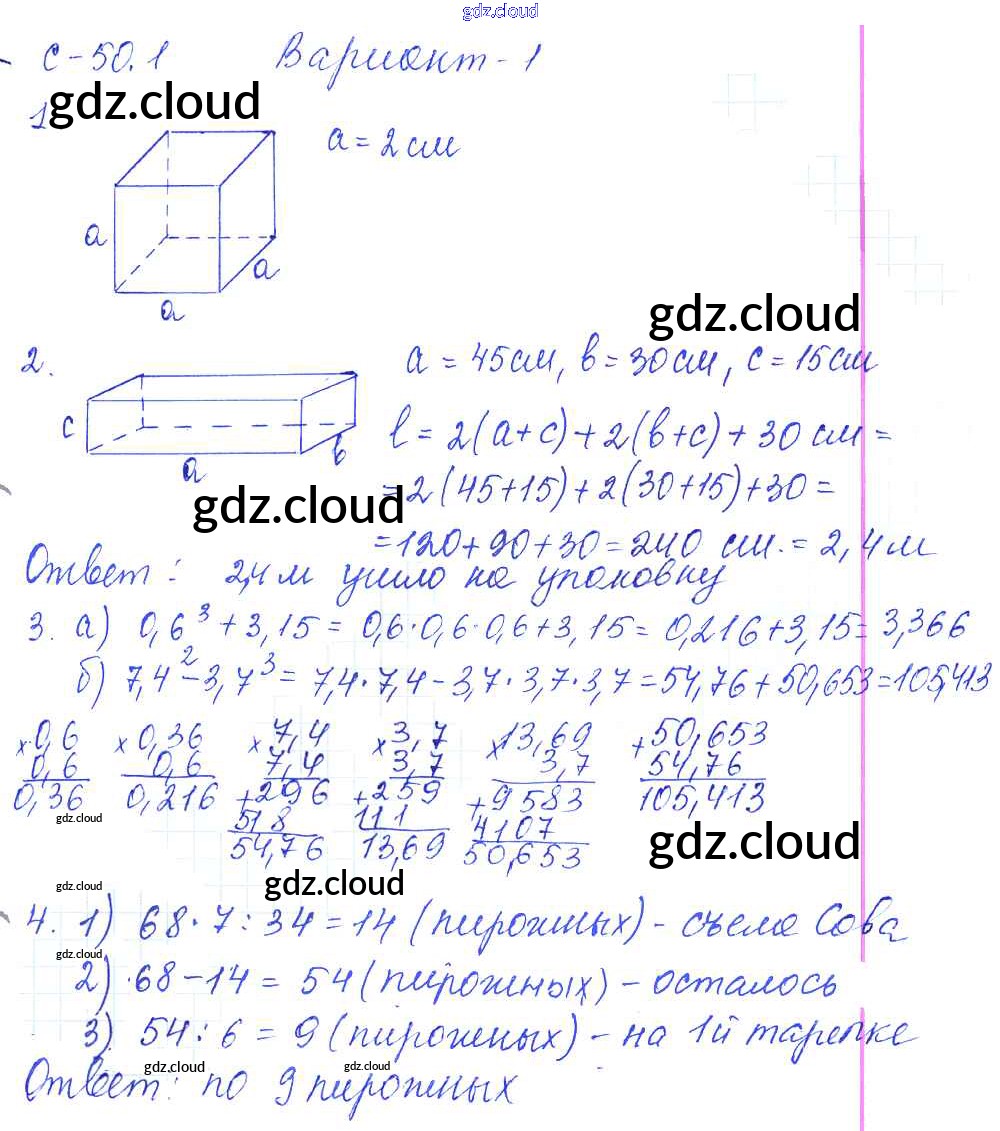 gdz.cloud
С-50.1 Вариант-1
gdz.cloud
1.
a = 2 см
a
a
a
gdz.cloud
2.
a = 45 см, b = 30 см, c = 15 см
c
a
b
l = 2(a+c)+2(b+c)+30 см =
= 2(45+15)+2(30+15)+30 =
gdz.cloud
= 120+90+30 = 240 см. = 2,4 м
Ответ: 2,4 м ушло на упаковку
3. а) 0,6³ + 3,15 = 0,6·0,6·0,6+3,15 = 0,216+3,15 = 3,366
б) 7,4² - 3,7³ = 7,4·7,4 - 3,7·3,7·3,7 = 54,76 + 50,653 = 105,413
×0,6 ×0,36 ×7,4 ×3,7 ×13,69 +50,653
0,6 0,6 7,4 3,7 3,7 54,76
0,36 0,216 +296 +259 +9583 105,413
gdz.cloud
518 111 4107
54,76 13,69 50,653
gdz.cloud
gdz.cloud
gdz.cloud
4. 1) 68·7:34 = 14 (пирожных) - съела Сова
gdz.cloud
2) 68-14 = 54 (пирожных) - осталось
3) 54:6 = 9 (пирожных) - на 1й тарелке
gdz.cloud gdz.cloud gdz.cloud
Ответ: по 9 пирожных